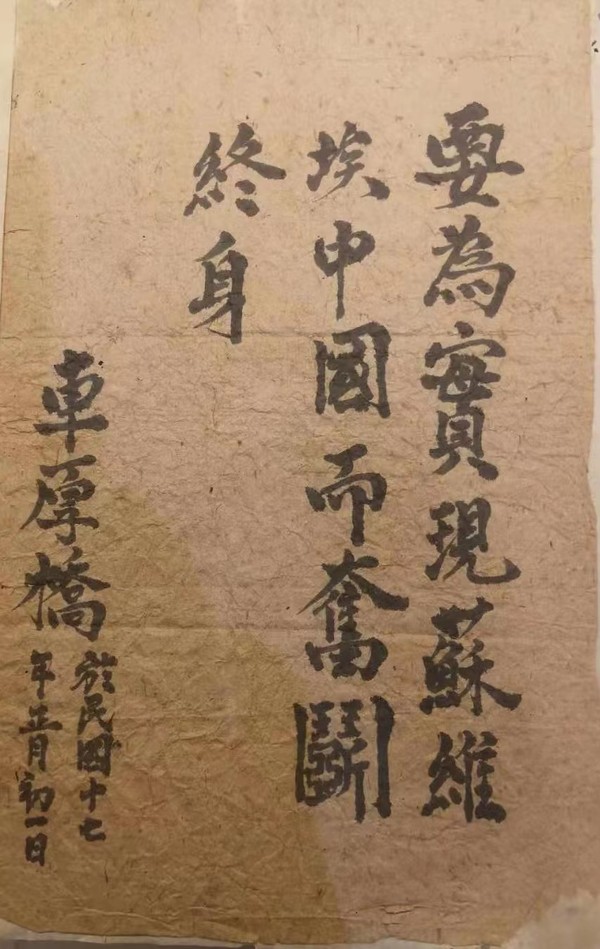 要為實現蘇維
埃中國而奮鬪
終身
車厚橋
於民国十七
年正月初一日